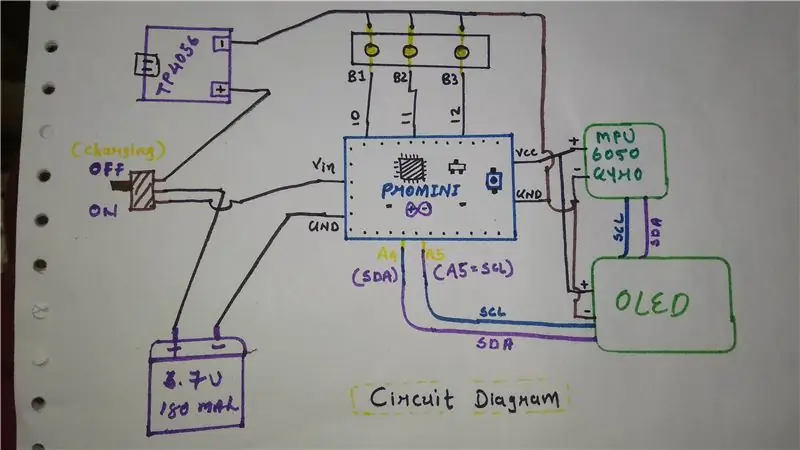 TP4056
-
+
B1 B2 B3
10 11 12
(charging)
OFF
ON
Vin
GND
PROMINI
VCC
GND
+
-
MPU
6050
GYRO
SCL
SDA
A4 A5
(SDA) (A5=SCL)
SCL
SDA
+
-
OLED
+ -
3.7V
180 MAH
Circuit Diagram